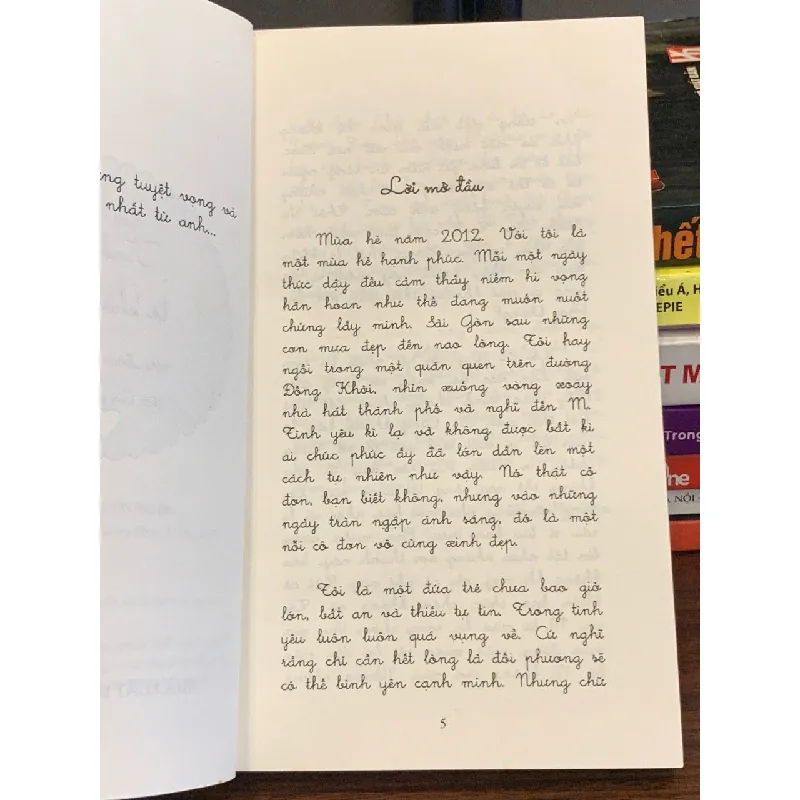 ng tuyệt vọng và
nhất từ anh...
Lời mở đầu
Mùa hè năm 2012. Với tôi là
một mùa hè hạnh phúc. Mỗi một ngày
thức dậy đều cảm thấy niềm hi vọng
hân hoan như thể đang muốn nuốt
chửng lấy mình. Sài Gòn sau những
cơn mưa đẹp đến nao lòng. Tôi hay
ngồi trong một quán quen trên đường
Đồng Khởi, nhìn xuống vòng xoay
nhà hát thành phố và nghĩ đến M.
Tình yêu kì lạ và không được bất kì
ai chúc phúc ấy đã lớn dần lên một
cách tự nhiên như vậy. Nó thật cô
đơn, bạn biết không, nhưng vào những
ngày tràn ngập ánh sáng, đó là một
nỗi cô đơn vô cùng xinh đẹp.
Tôi là một đứa trẻ chưa bao giờ
lớn, bất an và thiếu tự tin. Trong tình
yêu luôn luôn quá vụng về. Cứ nghĩ
rằng chỉ cần hết lòng là đối phương sẽ
có thể bình yên cạnh mình. Nhưng chữ
5
hết
iểu Á, H
EPIE
T M
Trong
ne
NỘI